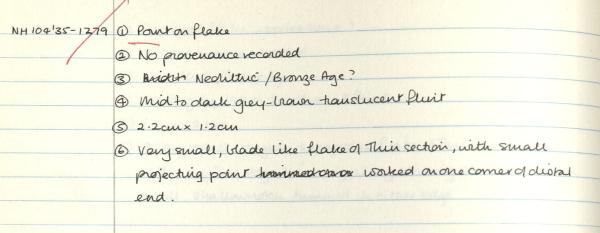 NH104'35-1279 ① Point on flake
② No provenance recorded
③ Neolithic / Bronze Age?
④ Mid to dark grey-brown translucent flint
⑤ 2.2cm x 1.2cm
⑥ Very small, blade like flake of thin section, with small
projecting point worked on one corner of distal
end.